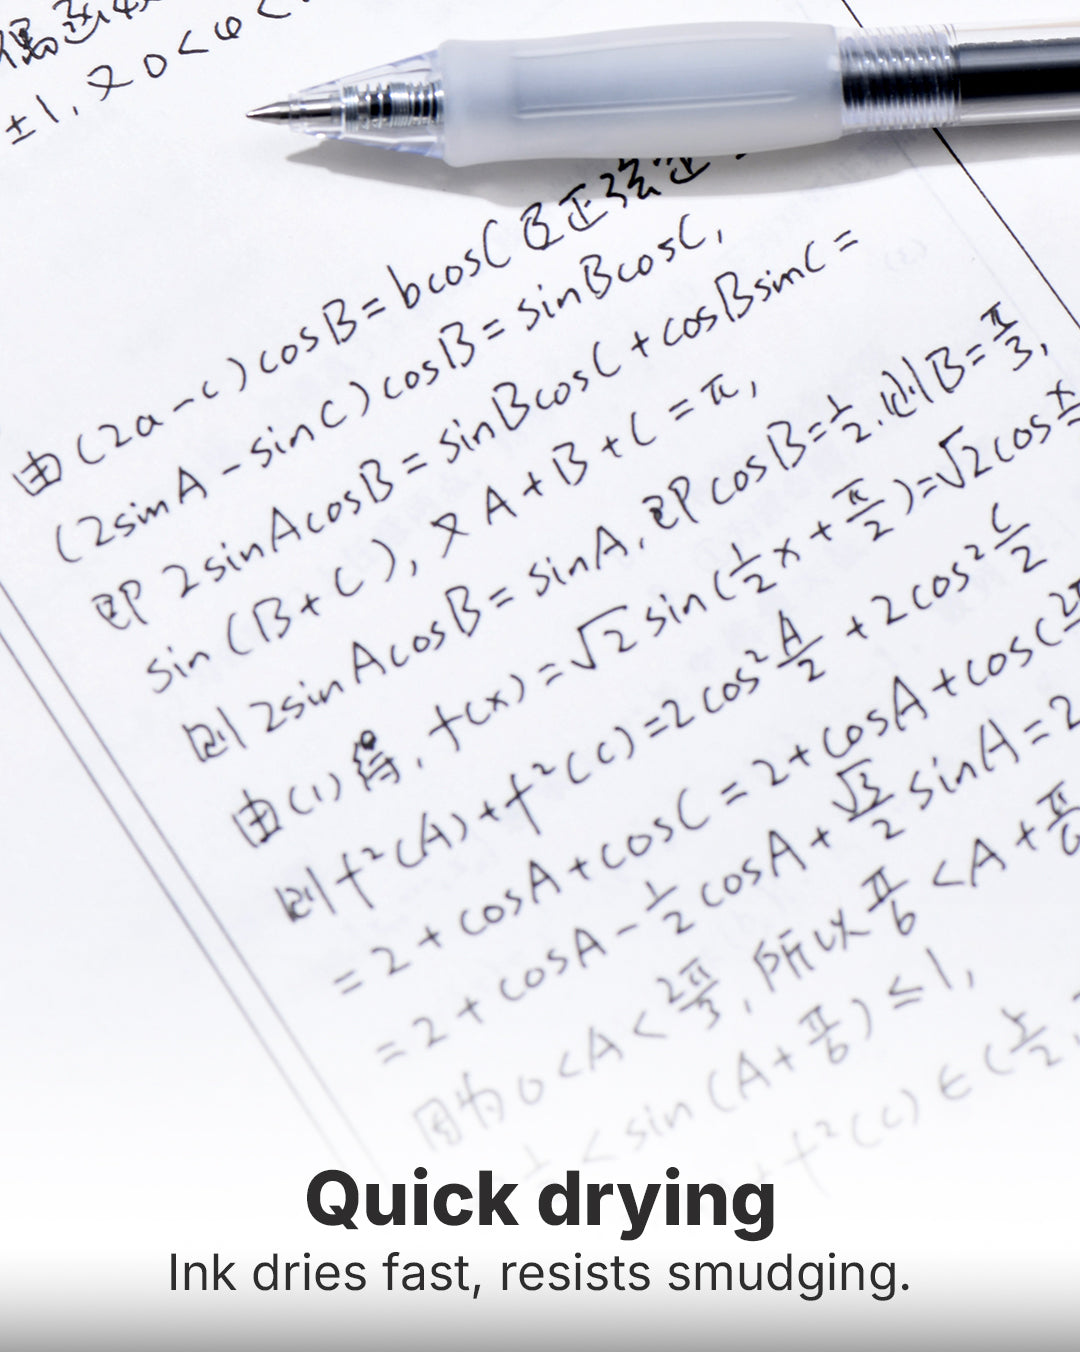 ±1, 又0<φ<
由(2a-c)cosB=bcosC及正弦定
(2sinA-sinC)cosB=sinBcosC,
即2sinAcosB=sinBcosC+cosBsinC=
sin(B+C), 又A+B+C=π,
则2sinAcosB=sinA, 即cosB=1/2. 则B=π/3,
由(1)得, f(x)=√2sin(1/2x+π/2)=√2cosx/
则f²(A)+f²(C)=2cos²A/2+2cos²C/2
=2+cosA+cosC=2+cosA+cos(2π
=2+cosA-1/2cosA+√3/2sinA=2
因为0<A<2π/3, 所以π/6<A+π/6
1/2<sin(A+π/6)≤1,
f²(C)∈(5/2,
Quick drying
Ink dries fast, resists smudging.